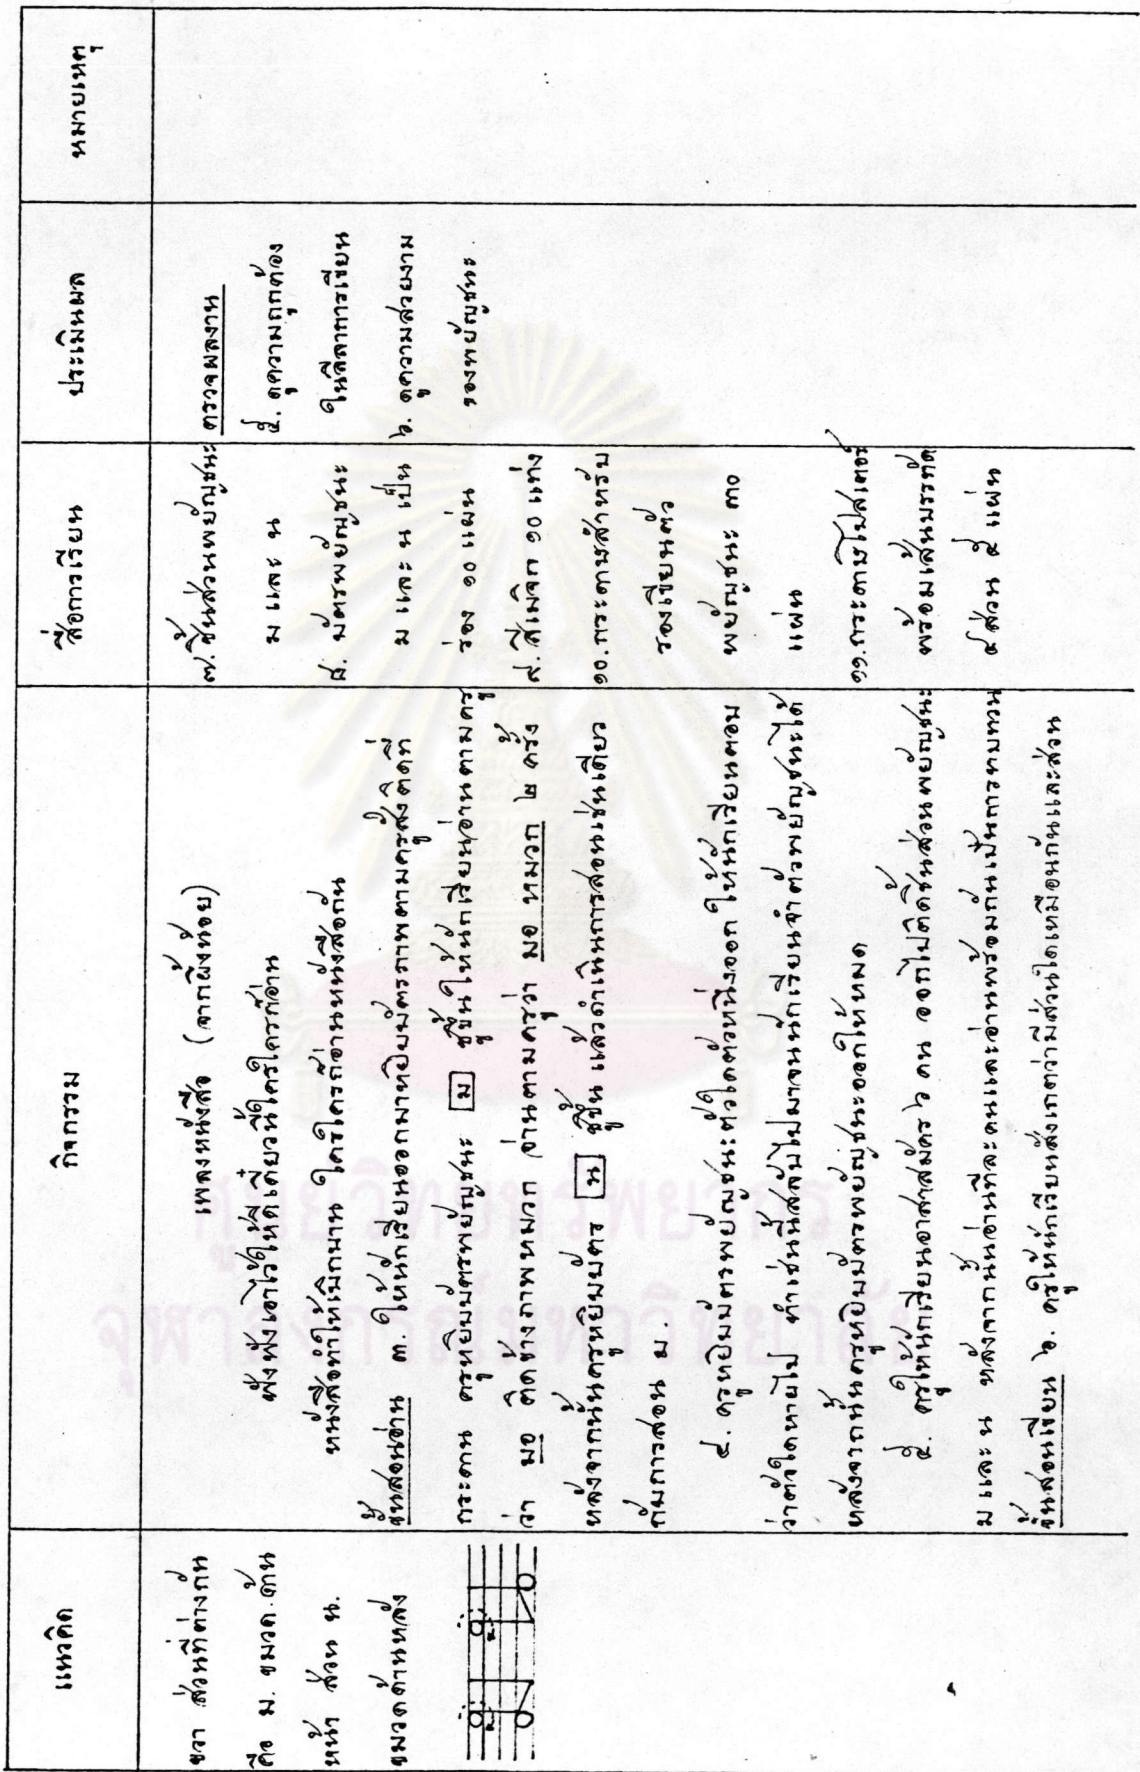 แนวคิด
กิจกรรม
สื่อการเรียน
ประเมินผล
หมายเหตุ
ขวา ส่วนที่ต่างกัน
คือ ม. ขมวด ด้าน
หน้า ส่วน น.
ขมวดด้านหลัง
เพลงหนังสือ (จากผึ้งน้อย)
ฟังฟังเอาไว้ให้ดีเดี๋ยวนี้ใครใครก็อ่าน
หนังสือทำให้เบิกบาน ใครใครก็อ่านหนังสือกัน
ขั้นสอนอ่าน ๓. ให้นักเรียนออกมาหยิบบัตรภาพตามครูสั่งติดที่
กระดาน ครูหยิบบัตรพยัญชนะ ม ชูขึ้นให้นักเรียนอ่านตามครู
ว่า มอ ติดข้างภาพหมวก อ่านตามครูว่า มอ หมวก ๒ ครั้ง
หลังจากนั้นครูหยิบบัตร น ชูขึ้น แล้วดำเนินการสอนเช่นเดียว
กับการสอน ม.
๔. ครูหยิบบัตรพยัญชนะตัวใดตัวหนึ่งออก ให้นักเรียนตอบ
ว่าตัวใดหายไป ทำเช่นนี้สลับไปมาจนนักเรียนจำตัวพยัญชนะได้
หลังจากนั้นครูหยิบบัตรพยัญชนะออกให้หมด
๕. ครูให้นักเรียนอาสาสมัคร ๖ คน ออกไปติดชิ้นส่วนพยัญชนะ
ม และ น หลังจากนั้นอ่านทีละคนและอ่านพร้อมกันเป็นการทบทวน
ขั้นสอนเขียน ๖. ครูให้นักเรียนสังเกตว่ามีส่วนใดเหมือนกันและส่วน
๗. ชิ้นส่วนพยัญชนะ
ม และ น
๘. บัตรพยัญชนะ
ม และ น เป็น
ร่อง ๑๐ แผ่น
๙. สีเมจิก ๑๐ แท่ง
๑๐. กระดาษสำหรับ
รองเขียนตัว
พยัญชนะ ๓๐
แผ่น
๑๑. กระดาษโปสเตอร์
พร้อมเส้นบรรทัด
๔ ส่วน ๕ แผ่น
ตรวจผลงาน
๕. ดูความถูกต้อง
ในลีลาการเขียน
๖. ดูความสวยงาม
ของพยัญชนะ
ศูนย์วิทยทรัพยากร
จุฬาลงกรณ์มหาวิทยาลัย